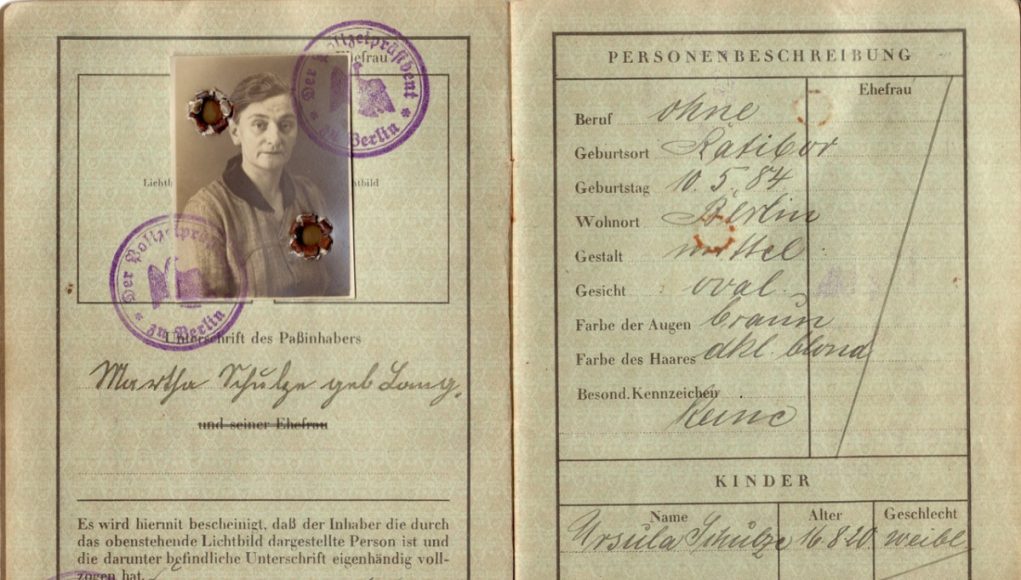 Ehefrau
Der Polizeipräsident
* zu Berlin *
Lichtb
htbild
Der Polizeipräsi
* zu Berlin *
Unterschrift des Paßinhabers
Martha Schulze geb Lang.
und seiner Ehefrau
Es wird hiermit bescheinigt, daß der Inhaber die durch
das obenstehende Lichtbild dargestellte Person ist und
die darunter befindliche Unterschrift eigenhändig voll-
zogen hat.
PERSONENBESCHREIBUNG
Ehefrau
Beruf ohne
Geburtsort Ratibor
Geburtstag 10.5.84
Wohnort Berlin
Gestalt mittel
Gesicht oval.
Farbe der Augen braun
Farbe des Haares dkl. blond
Besond. Kennzeichen
Keine
KINDER
Name Alter Geschlecht
Ursula Schulze 16 8 20 weibl.